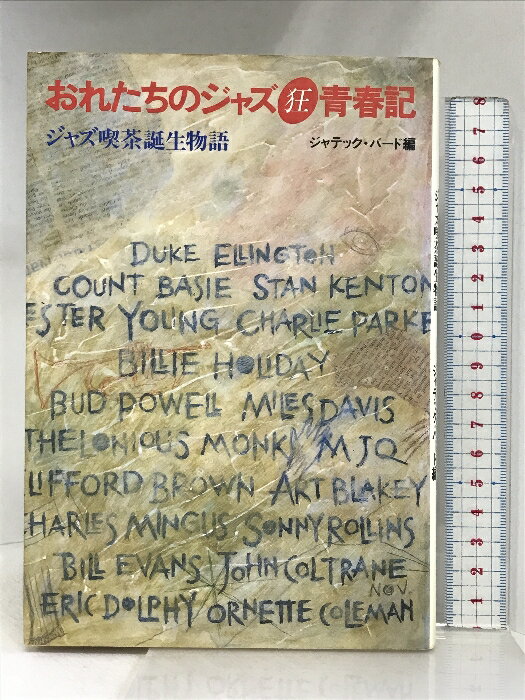 おれたちのジャズ狂青春記
ジャズ喫茶誕生物語
ジャテック・バード編
DUKE ELLINGTON
COUNT BASIE STAN KENTON
ESTER YOUNG CHARLIE PARKE
BILLIE HOLIDAY
BUD POWELL MILES DAVIS
THELONIOUS MONK MJQ
LIFFORD BROWN ART BLAKEY
HARLES MINGUS SONNY ROLLINS
BILL EVANS JOHN COLTRANE
NOV.
ERIC DOLPHY ORNETTE COLEMAN
8
7
6
5
4
3
2
1
0
9
8
7
6
5
4
3
2
1